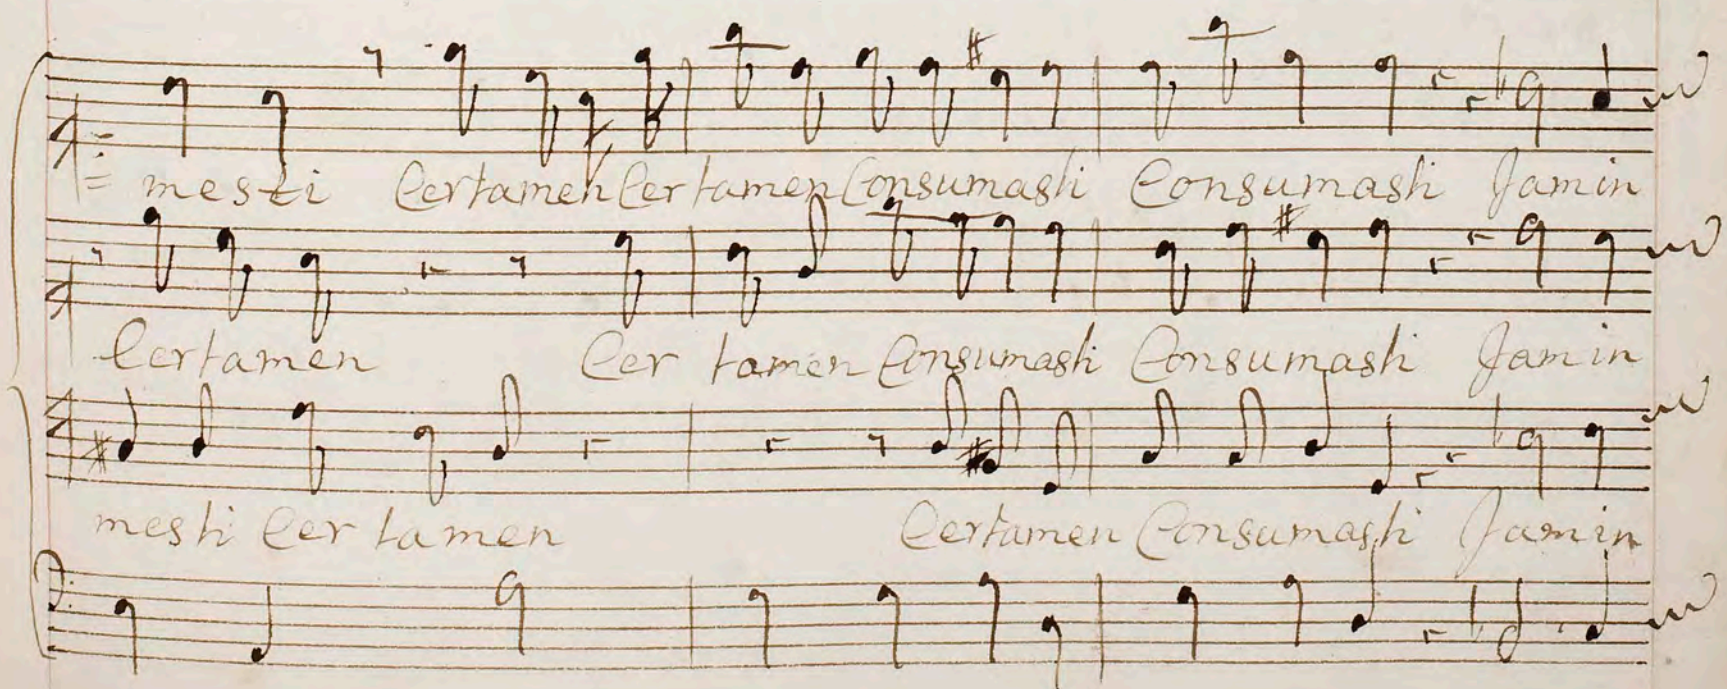 mesti Certamen Certamen Consumasti Consumasti Jam in
Certamen Cer tamen Consumasti Consumasti Jam in
mesti Cer tamen Certamen Consumasti Jam in